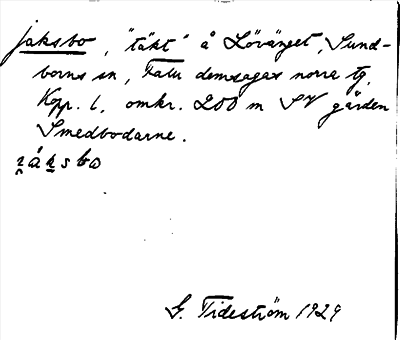 jaksbo, "täkt" å Lövänget, Sund-
borns sn, Falu domsagas norra tg,
Kopp. l, omkr. 200 m SV gården
Smedbodarne.
G. Tideström 1929